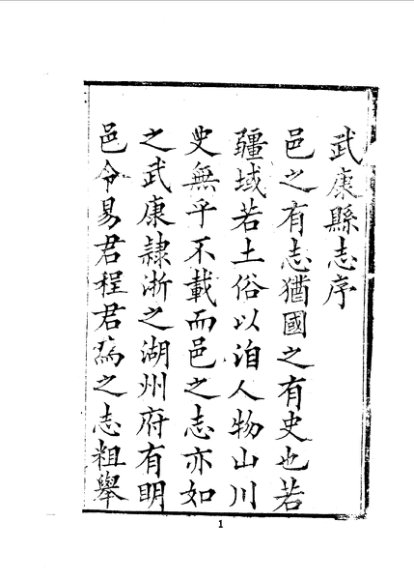 武康縣志序
邑之有志猶國之有史也若
疆域若土俗以洎人物山川
史無乎不載而邑之志亦如
之武康隷浙之湖州府有明
邑令易君程君爲之志粗舉
1